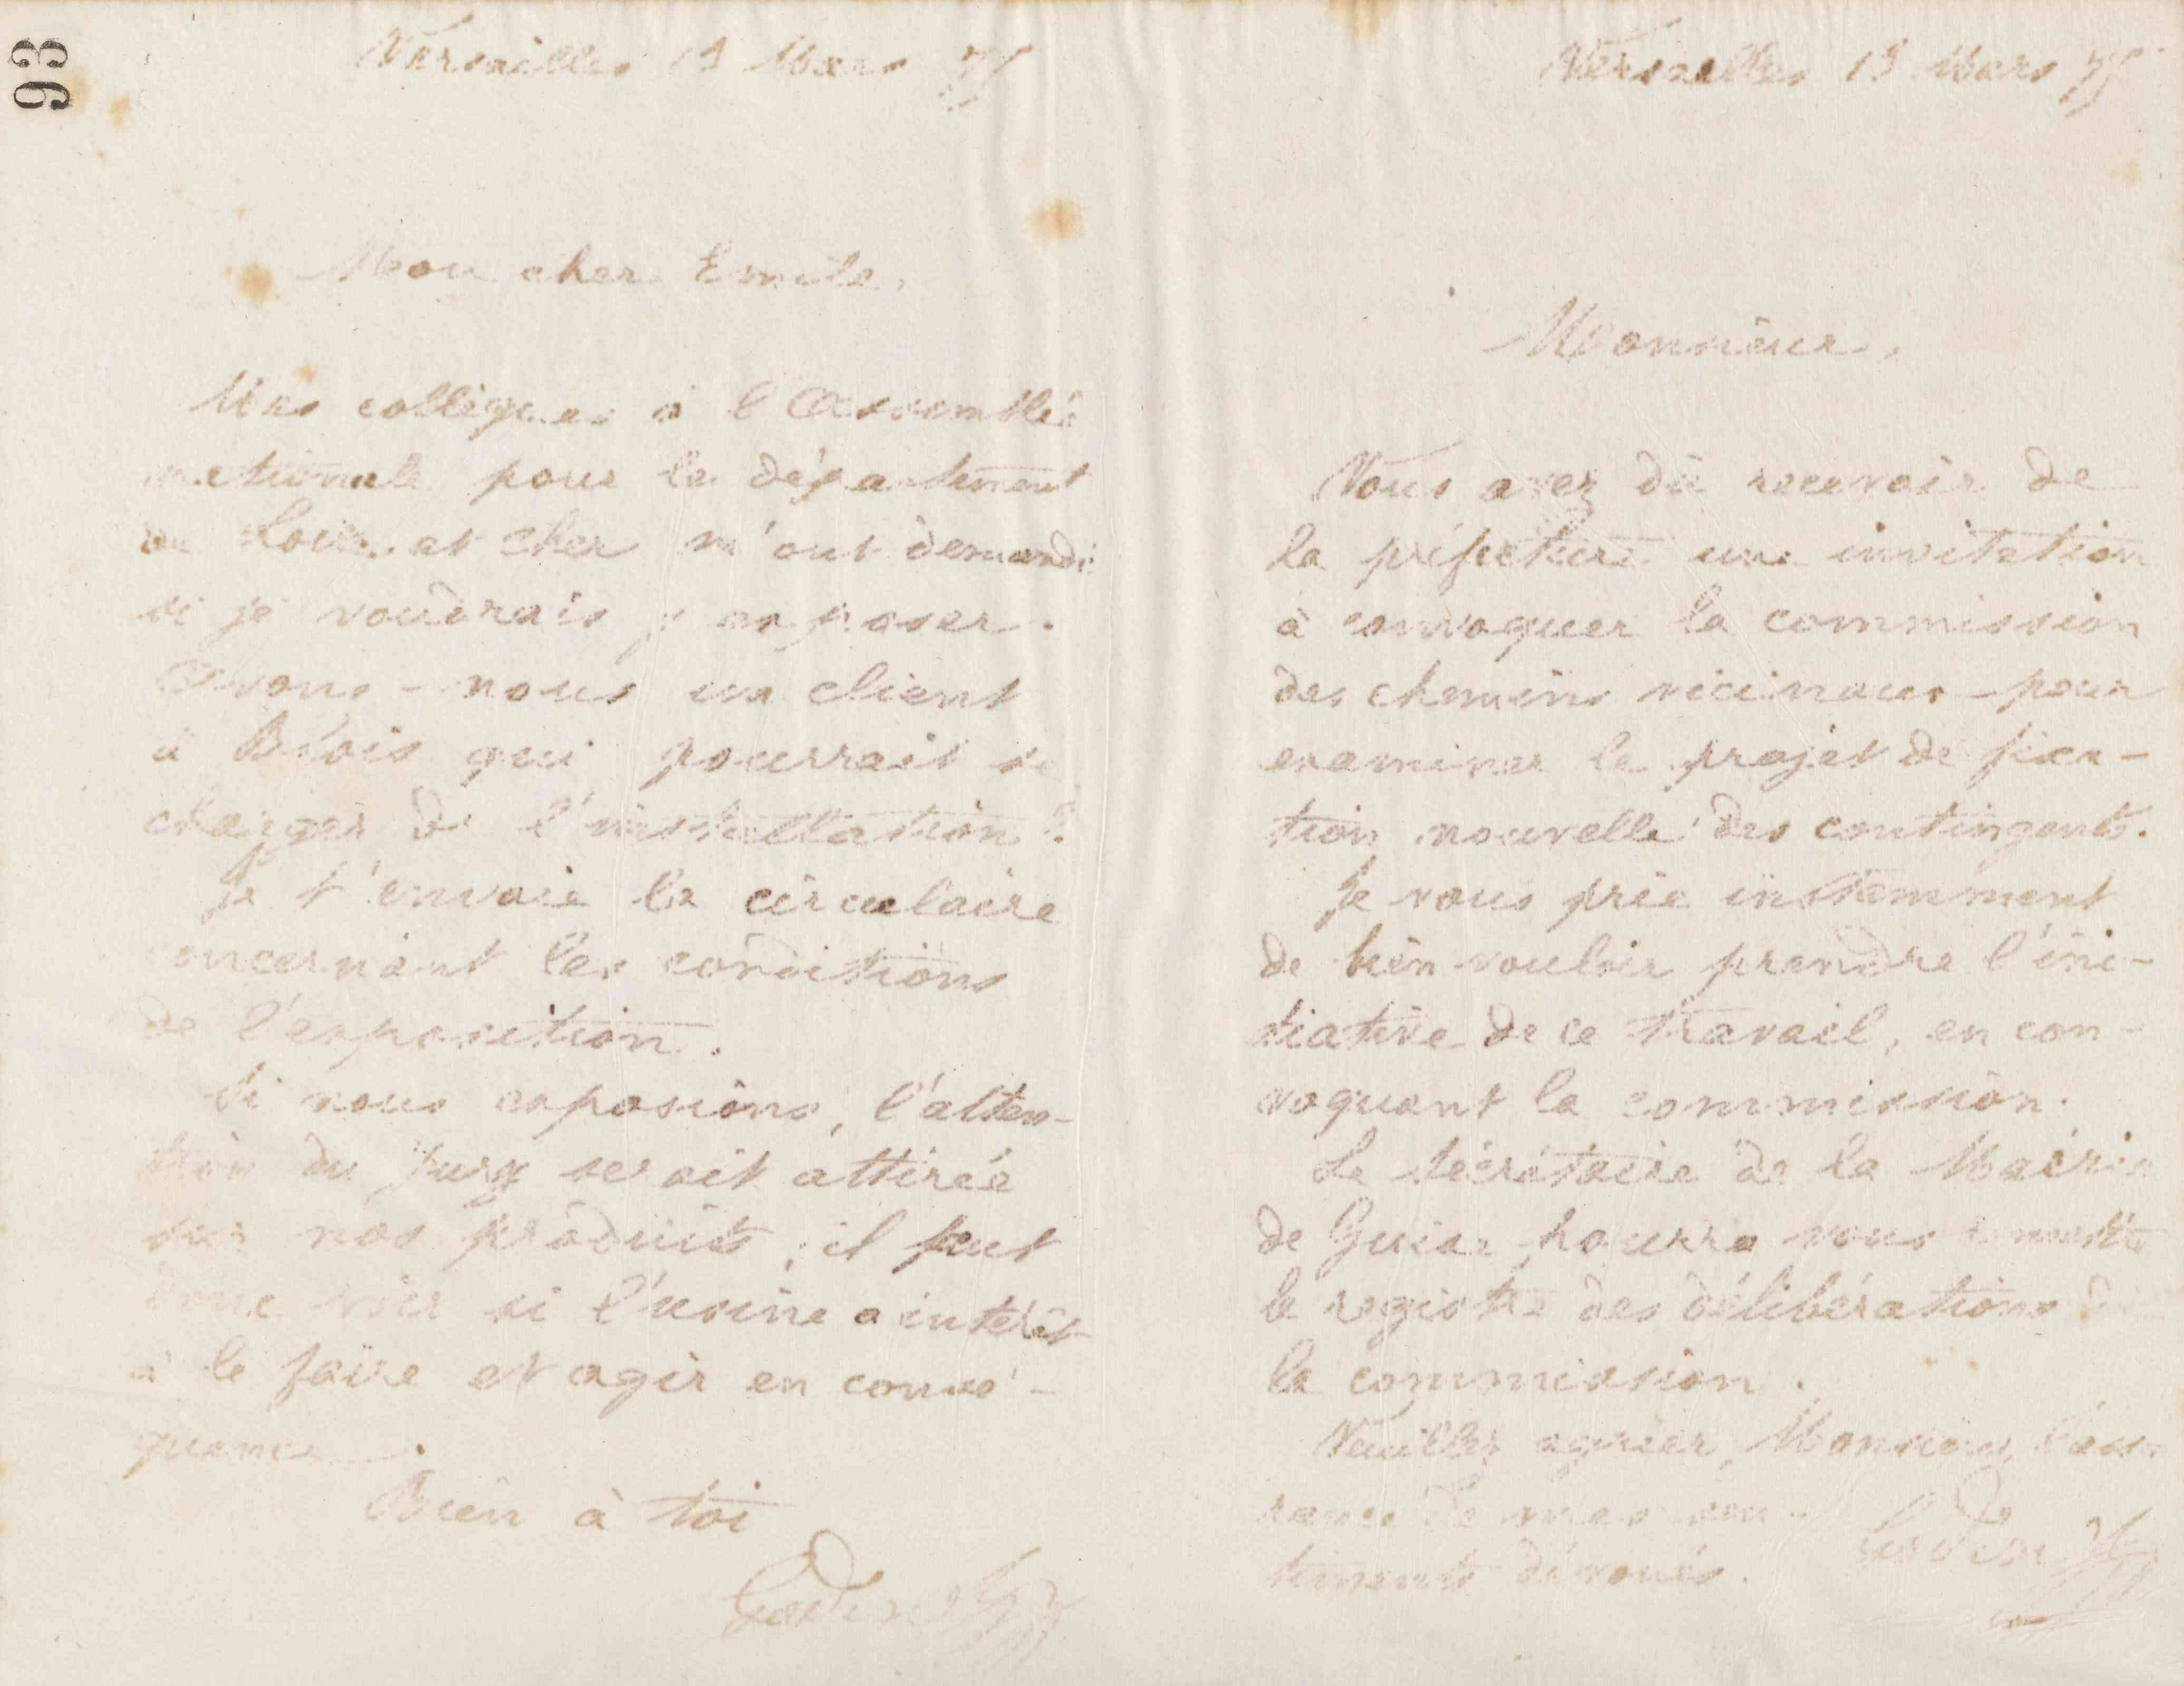 93
Versailles 19 Mars 75
Mon cher Emile,
Mes collègues à l'Assemblée
nationale pour le département
du Loir et cher m'ont demandé
si je voudrais y exposer.
Avons-nous un client
à Blois qui pourrait se
charger de l'installation ?
Je t'envoie la circulaire
concernant les conditions
de l'exposition.
Si nous exposions, l'atten-
tion du Jury serait attirée
sur nos produits, il faut
donc voir si l'usine a intérêt
à le faire et agir en consé-
quence.
Bien à toi
Godin
Versailles 19 Mars 75
Monsieur,
Vous avez dû recevoir de
la préfecture une invitation
à convoquer la commission
des chemins vicinaux pour
examiner le projet de fixa-
tion nouvelle des contingents.
Je vous prie instamment
de bien vouloir prendre l'ini-
tiative de ce travail, en con-
voquant la commission.
Le Secrétaire de la Mairie
de Guise pourra vous
le registre des délibérations de
la commission.
Veuillez agréer, Monsieur, l'assu
rance de mes sen-
timents dévoués.
Godin